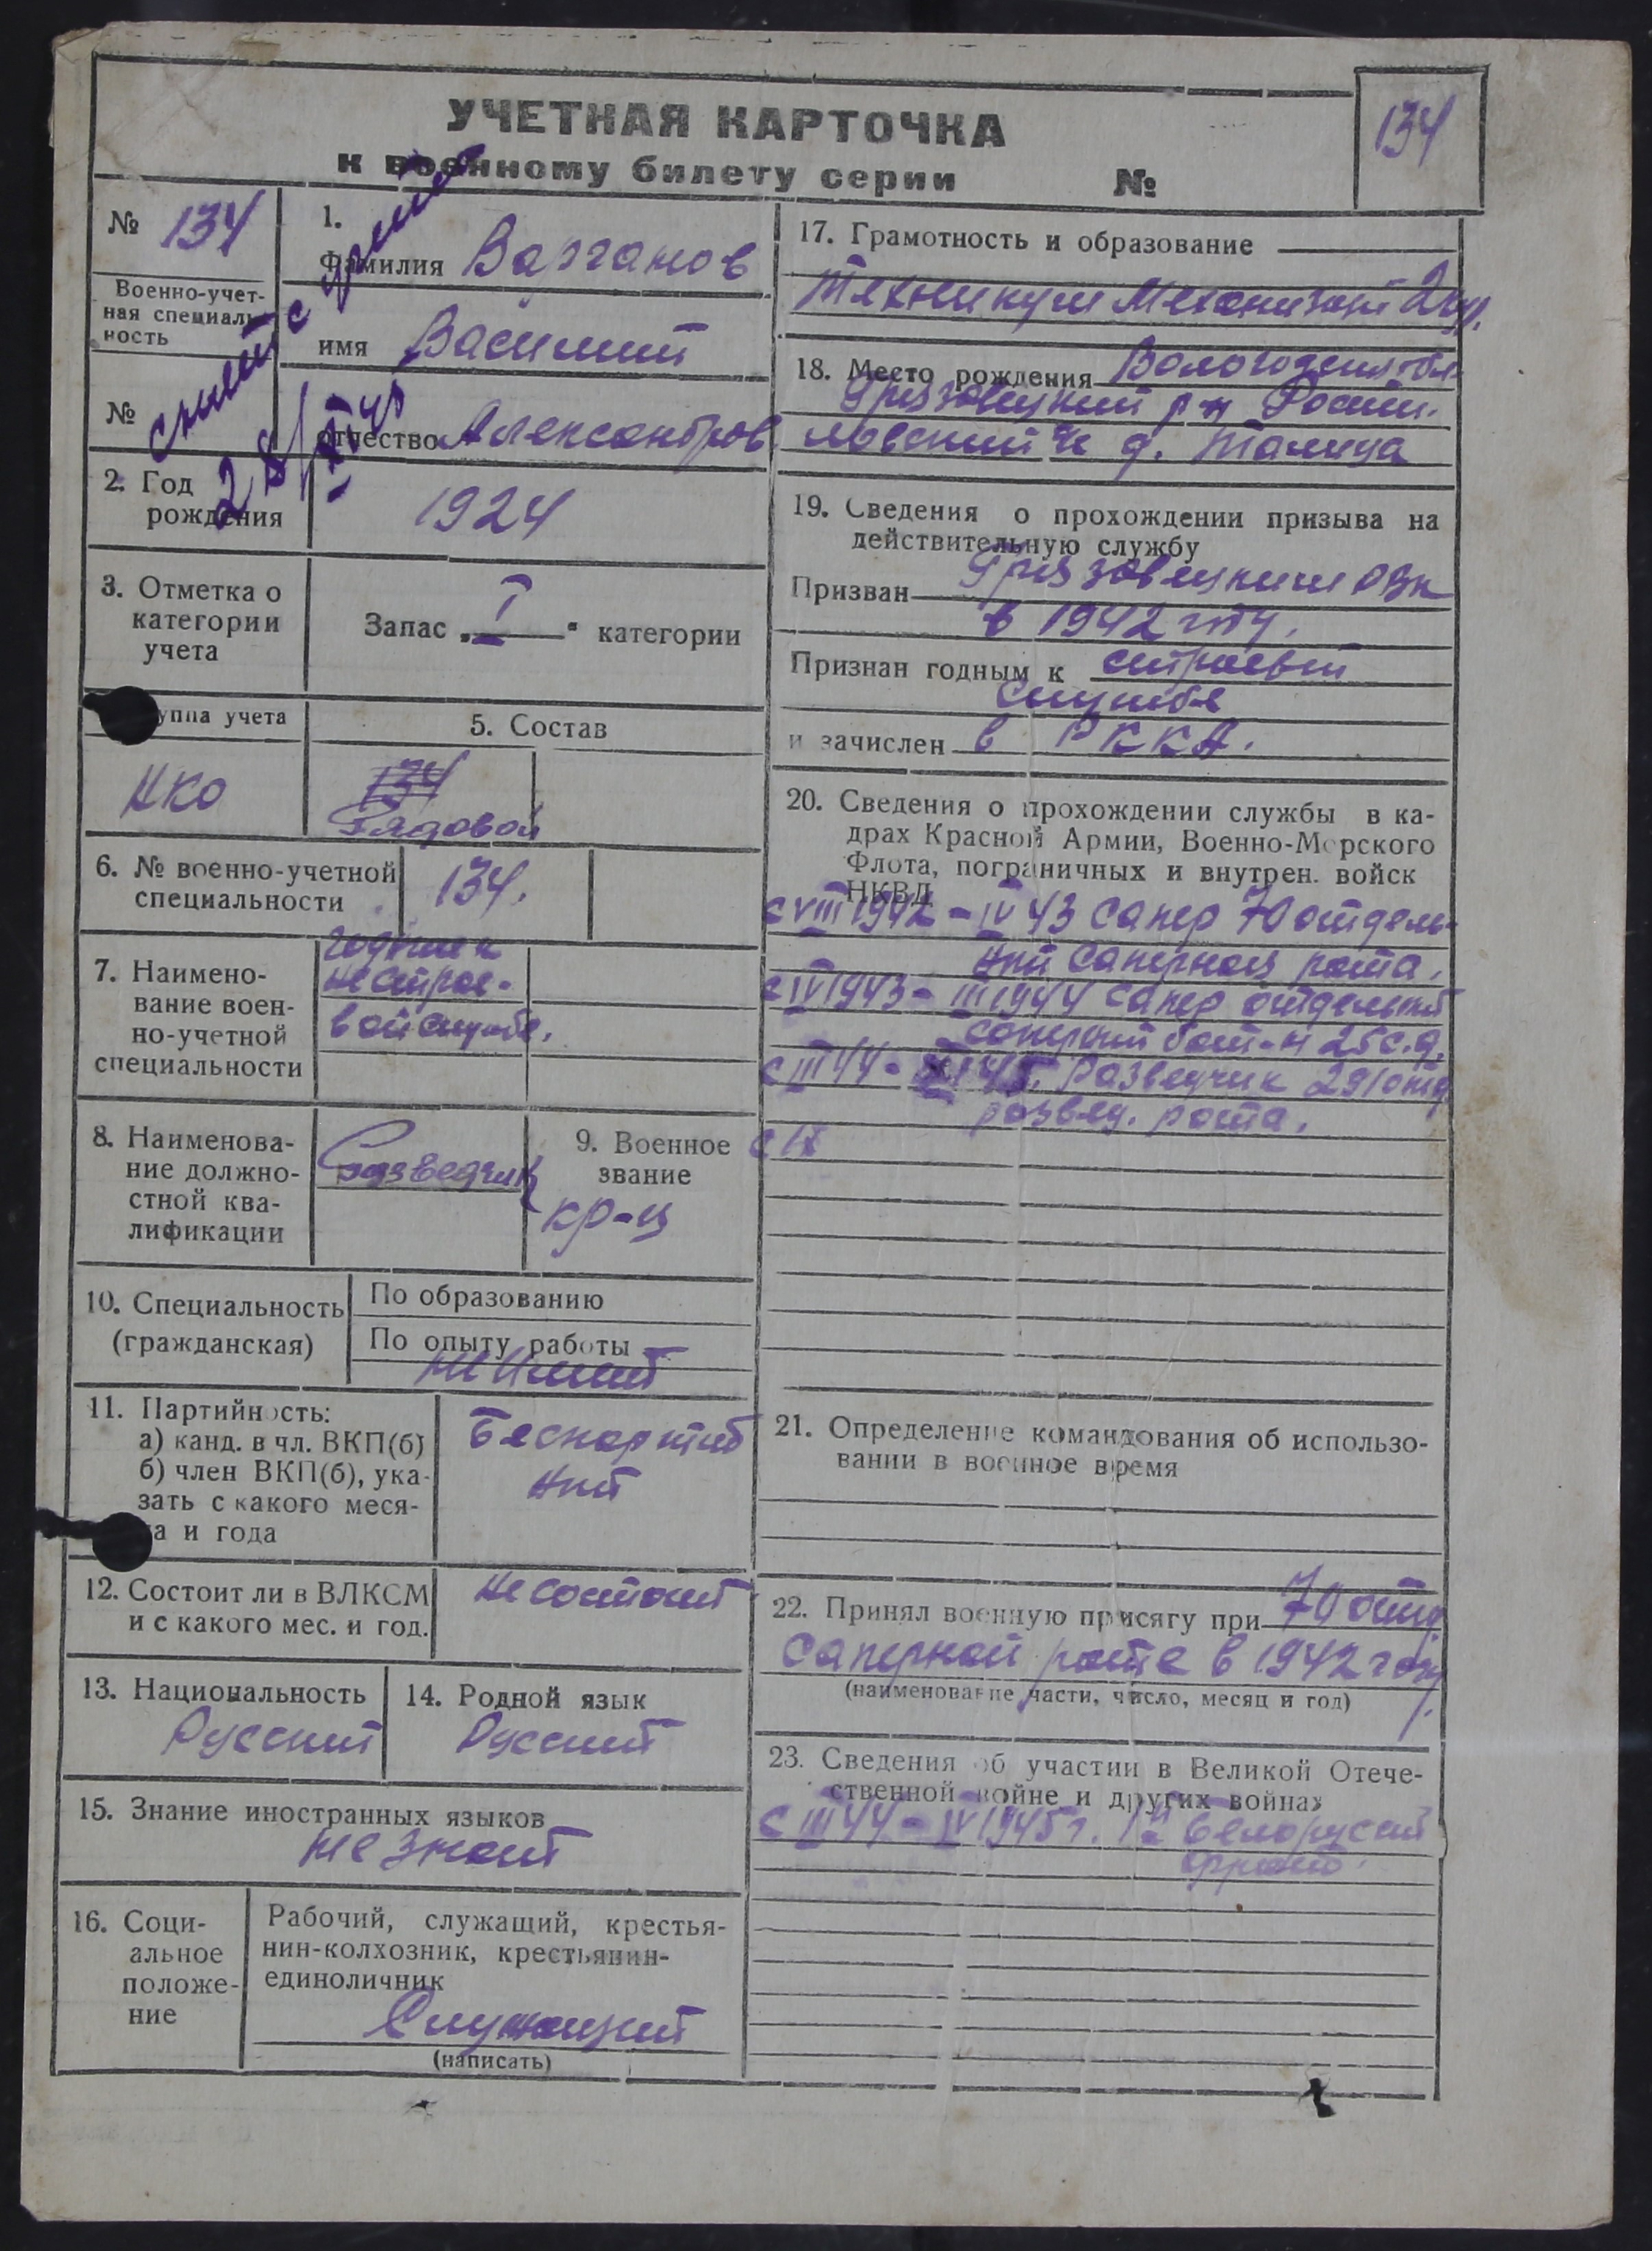 УЧЕТНАЯ КАРТОЧКА
к военному билету серии №
134
№ 134
Военно-учет-
ная специаль-
ность
№
снят с учета
28/
1.
Фамилия Варганов
имя Василий
отчество Александров
2. Год
рождения
1924
3. Отметка о
категории
учета
Запас „I“ категории
уппа учета
НКО
5. Состав
134
Рядовой
6. № военно-учетной
специальности
134.
7. Наимено-
вание воен-
но-учетной
специальности
годен к
нестрое-
вой службе.
8. Наименова-
ние должно-
стной ква-
лификации
Разведчик
9. Военное
звание
кр-ц
10. Специальность
(гражданская)
По образованию
По опыту работы
не имеет
11. Партийность:
а) канд. в чл. ВКП(б)
б) член ВКП(б), ука-
зать с какого меся-
ца и года
Беспартий
ный
12. Состоит ли в ВЛКСМ
и с какого мес. и год.
не состоит
13. Национальность
Русский
14. Родной язык
Русский
15. Знание иностранных языков
не знает
16. Соци-
альное
положе-
ние
Рабочий, служащий, крестья-
нин-колхозник, крестьянин-
единоличник
Служащий
(написать)
17. Грамотность и образование
Техникум Механизац 2 кур.
18. Место рождения Вологодская обл.
Грязовецкий р-н
д. Талица
19. Сведения о прохождении призыва на
действительную службу
Призван Грязовецким РВК
в 1942 году.
Признан годным к строевой
службе
и зачислен в РККА.
20. Сведения о прохождении службы в ка-
драх Красной Армии, Военно-Морского
Флота, пограничных и внутрен. войск
НКВД
с VIII 1942 - IV 43 сапер 70 отдель-
ная саперная рота.
с IV 1943 - III 1944 сапер отдельный
саперный бат-н 25 с.д.
с III 44 - 45. Разведчик 291 отд
развед. рота.
с IX
21. Определение командования об использо-
вании в военное время
22. Принял военную присягу при 70 отд.
саперной роте в 1942 году.
(наименование части, число, месяц и год)
23. Сведения об участии в Великой Отече-
ственной войне и других войнах
с III 44 - IV 1945 г. 1й Белорусский
фронт.